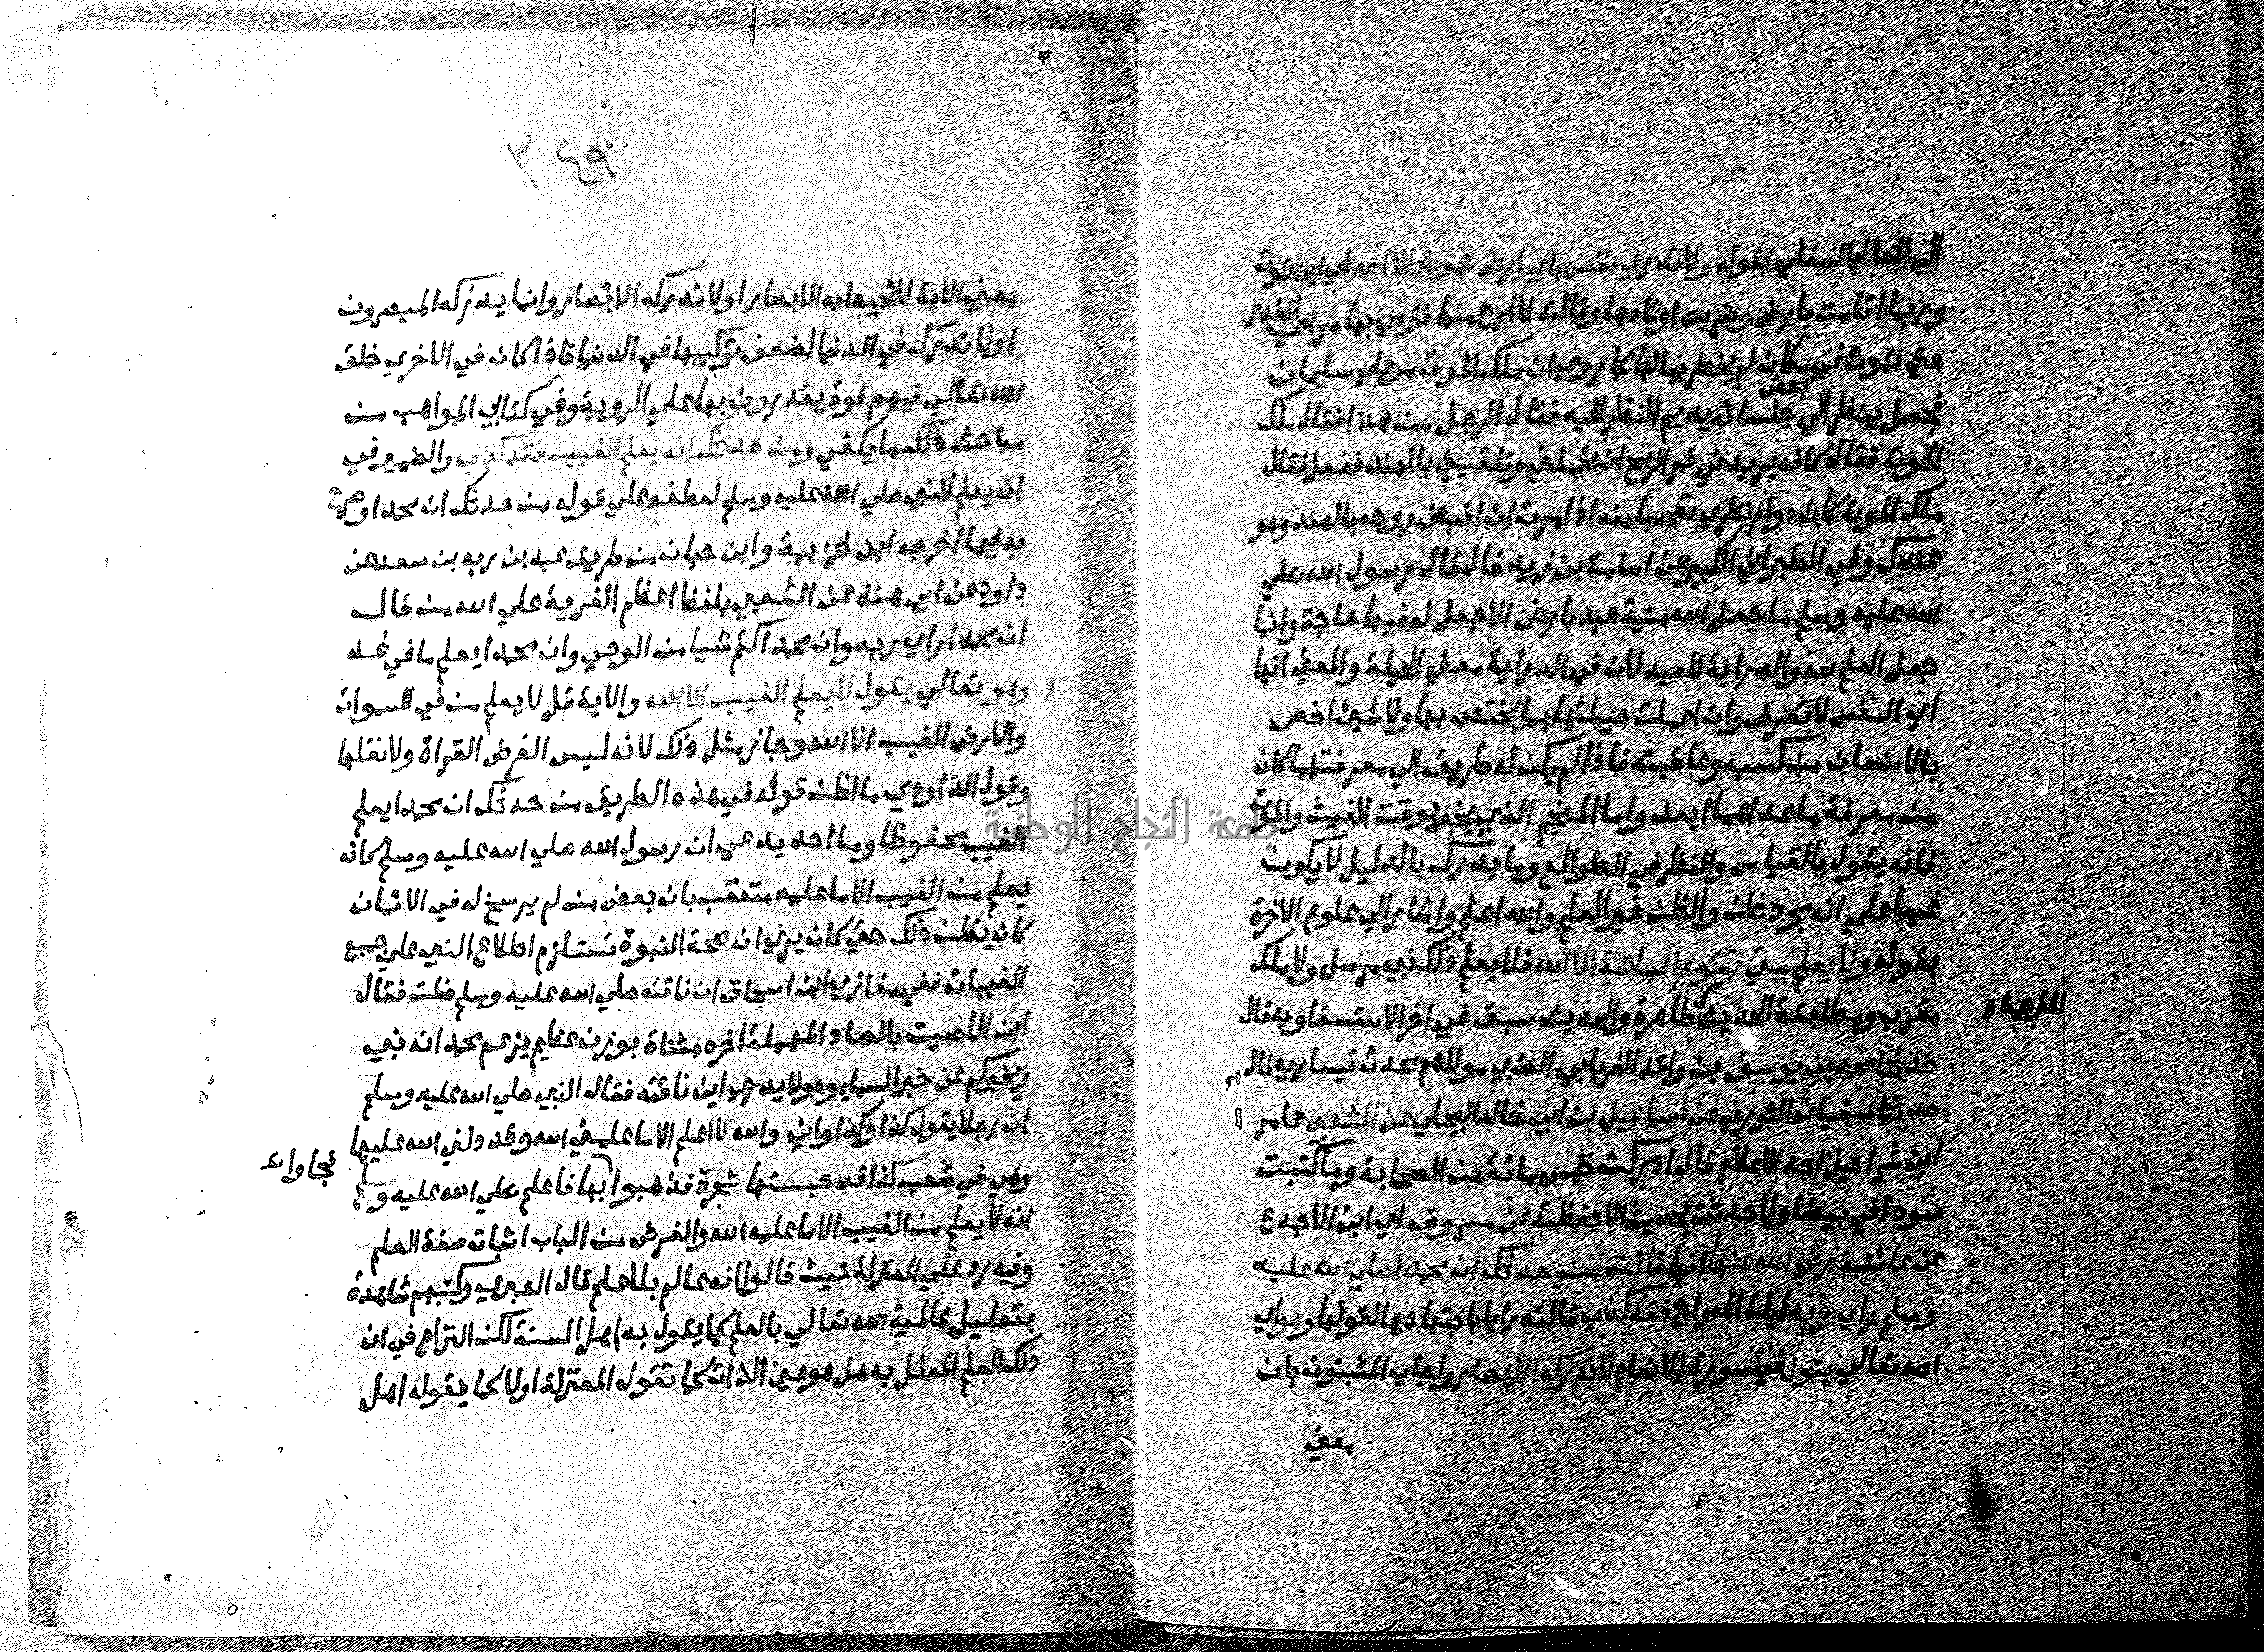 الى العالم السفلي بقوله ولا تدري نفس باي ارض تموت الا الله اي اين تموت
وربما اقامت بارض وضربت اوتادها وقالت لا ابرح منها فترمي بها مرامي القدر
حتى تموت في مكان لم يخطر ببالها كما روي ان ملك الموت مر على سليمان
فجعل ينظر الى بعض جلسائه يديم النظر اليه فقال الرجل من هذا فقال ملك
الموت فقال كانه يريدني فمر الريح ان تحملني وتلقيني بالهند ففعل فقال
ملك الموت كان دوام نظري تعجبا منه اذ امرت ان اقبض روحه بالهند وهو
عندك وفي الطبراني الكبير عن اسامة بن زيد قال قال رسول الله صلي
الله عليه وسلم ما جعل الله منية عبد بارض الا جعل له فيها حاجة وانما
جعل العلم لله والدراية للعبد لان في الدراية معني الحيلة والمعني انها
اي النفس لا تعرف وان اعملت حيلتها ما يختص بها ولا شيئ اخص
بالانسان من كسبه وعاقبته فاذا لم يكن له طريق الي معرفتهما كان
من معرفة ما عداهما ابعد واما المنجم الذي يخبر بوقت الغيث والموت
فانه يقول بالقياس والنظر في الطوالع وما يدرك بالدليل لا يكون
غيبا علي انه مجرد ظن والظن غير العلم والله اعلم واشار الي علوم الاخرة
بقوله ولا يعلم متي تقوم الساعة الا الله فلا يعلم ذلك نبي مرسل ولا ملك
مقرب ومطابقة الحديث ظاهرة والحديث سبق في اخر الاستسقا وبه قال
للترجمة
حدثنا محمد بن يوسف بن واقد الفريابي الضبي مولاهم محدث قيسارية قال
حدثنا سفيان الثوري عن اسماعيل بن ابي خالد البجلي عن الشعبي عامر
ابن شراحيل احد الاعلام قال ادركت خمس مائة من الصحابة وما كتبت
سودا في بيضا ولا حدثت بحديث الا حفظته عن مسروق اي ابن الاجدع
عن عائشة رضي الله عنها انها قالت من حدثك ان محمدا صلي الله عليه
وسلم راي ربه ليلة المعراج فقد كذب قالته رايا باجتهادها لقولها وهو اي
الله تعالي يقول في سورة الانعام لا تدركه الابصار واجاب المثبتون بان
معني
٣٤٩
معني الاية لا تحيط به الابصار اولا تدركه الابصار وانما يدركه المبصرون
اولا تدركه في الدنيا لضعف تركيبها في الدنيا فاذا كان في الاخري خلق
الله تعالي فيهم قوة يقدرون بها علي الروية وفي كتابي المواهب من
مباحث ذلك ما يكفي ومن حدثك انه يعلم الغيب فقد كذب والضمير في
انه يعلم للنبي صلي الله عليه وسلم لعطفه علي قوله من حدثك ان محمدا وصرح
به فيما اخرجه ابن خزيمة وابن حبان من طريق عبد ربه بن سعد عن
داود عن ابي هند عن الشعبي بلفظ اعظم الفرية علي الله من قال
ان محمدا راي ربه وان محمدا كتم شيا من الوحي وان محمدا يعلم ما في غد
وهو تعالي يقول لا يعلم الغيب الا الله والاية قل لا يعلم من في السموات
والارض الغيب الا الله وجاز مثل ذلك لانه ليس الغرض القراة ولا نقلها
وقول الداودي ما اظن قوله في هذه الطريق من حدثك ان محمدا يعلم
الغيب محفوظا وما احد يدعي ان رسول الله صلي الله عليه وسلم كان
يعلم من الغيب الا ما علمه متعقب بان بعض من لم يرسخ له في الايمان
كان يظن ذلك حتي كان يري ان صحة النبوة تستلزم اطلاع النبي علي جميع
المغيبات ففي مغازي ابن اسحاق ان ناقته صلي الله عليه وسلم ضلت فقال
ابن اللصيت بالصاد المهملة اخره مثناة بوزن عظيم يزعم محمد انه نبي
ويخبركم عن خبر السماء وهو لا يدري اين ناقته فقال النبي صلي الله عليه وسلم
ان رجلا يقول كذا وكذا واني والله لا اعلم الا ما علمني الله وقد دلني الله عليها
وهي في شعب كذا قد حبستها شجرة فذهبوا بها فاعلم صلي الله عليه وسلم
انه لا يعلم من الغيب الا ما علمه الله والغرض من الباب اثبات صفة العلم
وفيه رد علي المعتزلة حيث قالوا انه عالم بلا علم قال العبري وكتبهم شاهدة
بتعليل عالمية الله تعالي بالعلم كما يقول به اهل السنة لكن النزاع في ان
ذلك العلم المعلل به هل هو عين الذات كما تقول المعتزلة اولا كما يقوله اهل
جامعة النجاح الوطنية